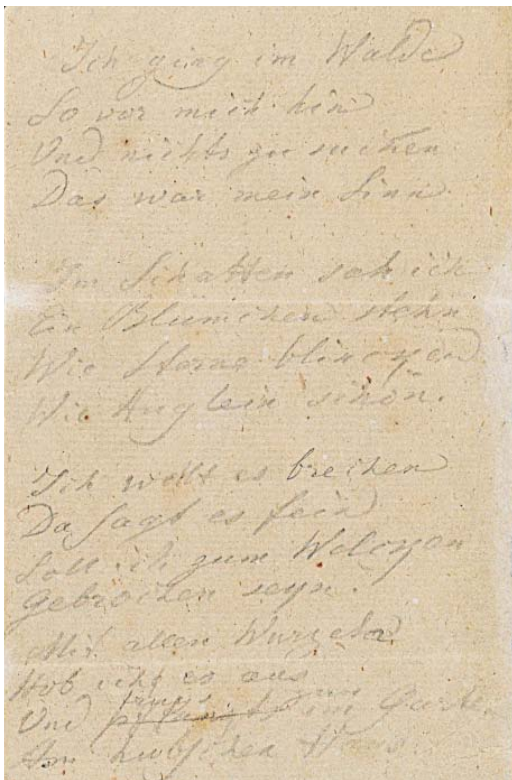 Ich ging im Walde
So vor mich hin
Und nichts zu suchen
Das war mein Sinn.
Im Schatten sah ich
Ein Blümchen stehn
Wie Sterne blincken
Wie Äuglein schön.
Ich wollt es brechen
Da sagt es fein
Soll ich zum Welcken
Gebrochen seyn.
Mit allen Wurzeln
Hob ich es aus
Und trugs zum Garten
Am hübschen Haus.